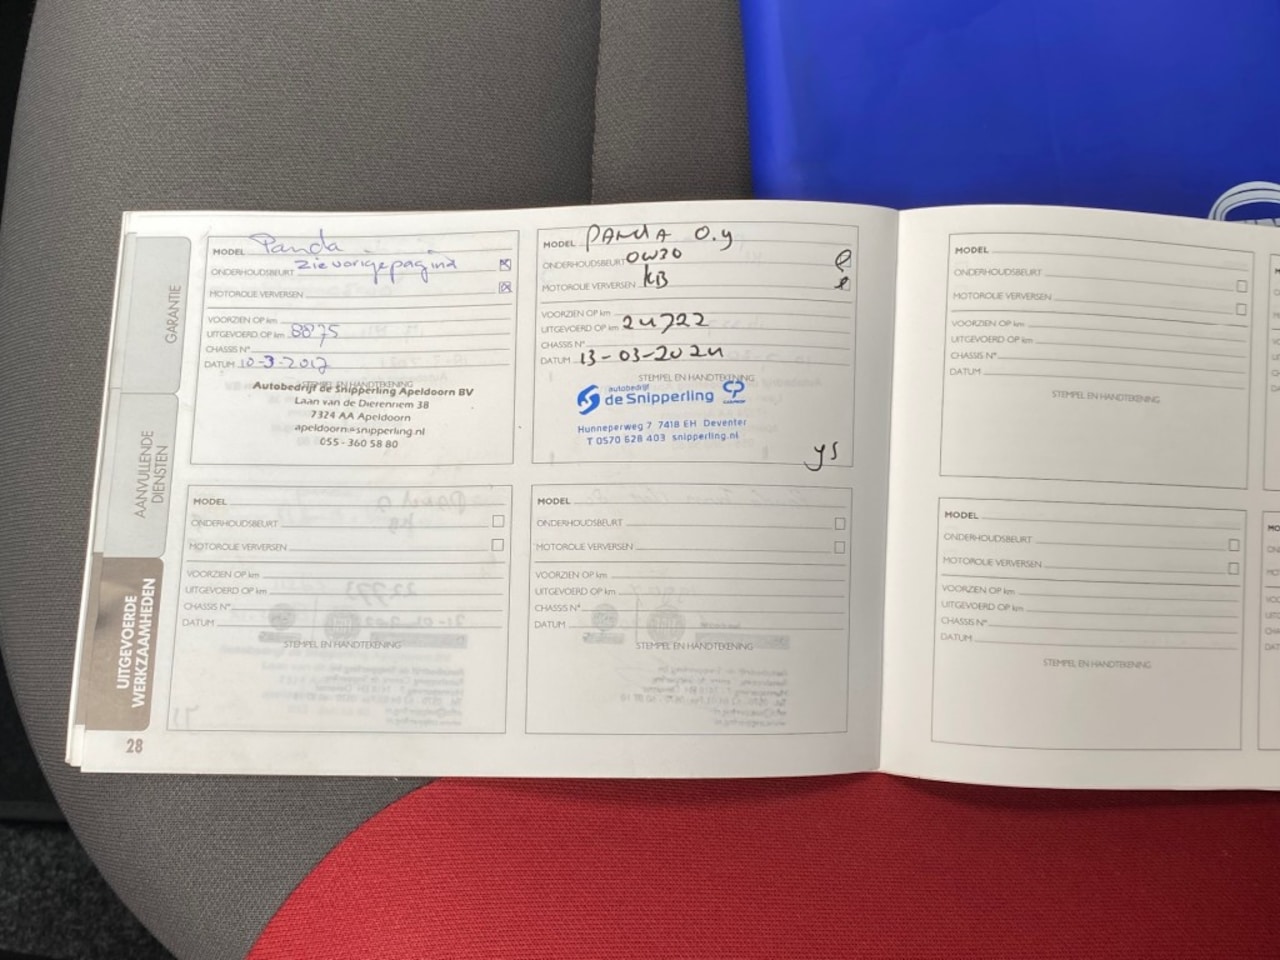 GARANTIE
AANVULLENDE
DIENSTEN
UITGEVOERDE
WERKZAAMHEDEN
28
MODEL Panda
ONDERHOUDSBEURT zie vorige pagina
MOTOROLIE VERVERSEN
VOORZIEN OP km
UITGEVOERD OP km 8875
CHASSIS N°
DATUM 10-3-2017
STEMPEL EN HANDTEKENING
Autobedrijf de Snipperling Apeldoorn BV
Laan van de Dierenriem 38
7324 AA Apeldoorn
apeldoorn@snipperling.nl
055 - 360 58 80
MODEL PANDA 0.9
ONDERHOUDSBEURT 0W30
MOTOROLIE VERVERSEN KB
VOORZIEN OP km
UITGEVOERD OP km 24722
CHASSIS N°
DATUM 13-03-2024
STEMPEL EN HANDTEKENING
autobedrijf
de Snipperling CP
Hunneperweg 7 7418 EH Deventer
T 0570 628 403 snipperling.nl
ys
MODEL
ONDERHOUDSBEURT
MOTOROLIE VERVERSEN
VOORZIEN OP km
UITGEVOERD OP km
CHASSIS N°
DATUM
STEMPEL EN HANDTEKENING
MODEL
ONDERHOUDSBEURT
MOTOROLIE VERVERSEN
VOORZIEN OP km
UITGEVOERD OP km
CHASSIS N°
DATUM
STEMPEL EN HANDTEKENING
MODEL
ONDERHOUDSBEURT
MOTOROLIE VERVERSEN
VOORZIEN OP km
UITGEVOERD OP km
CHASSIS N°
DATUM
STEMPEL EN HANDTEKENING
MODEL
ONDERHOUDSBEURT
MOTOROLIE VERVERSEN
VOORZIEN OP km
UITGEVOERD OP km
CHASSIS N°
DATUM
STEMPEL EN HANDTEKENING